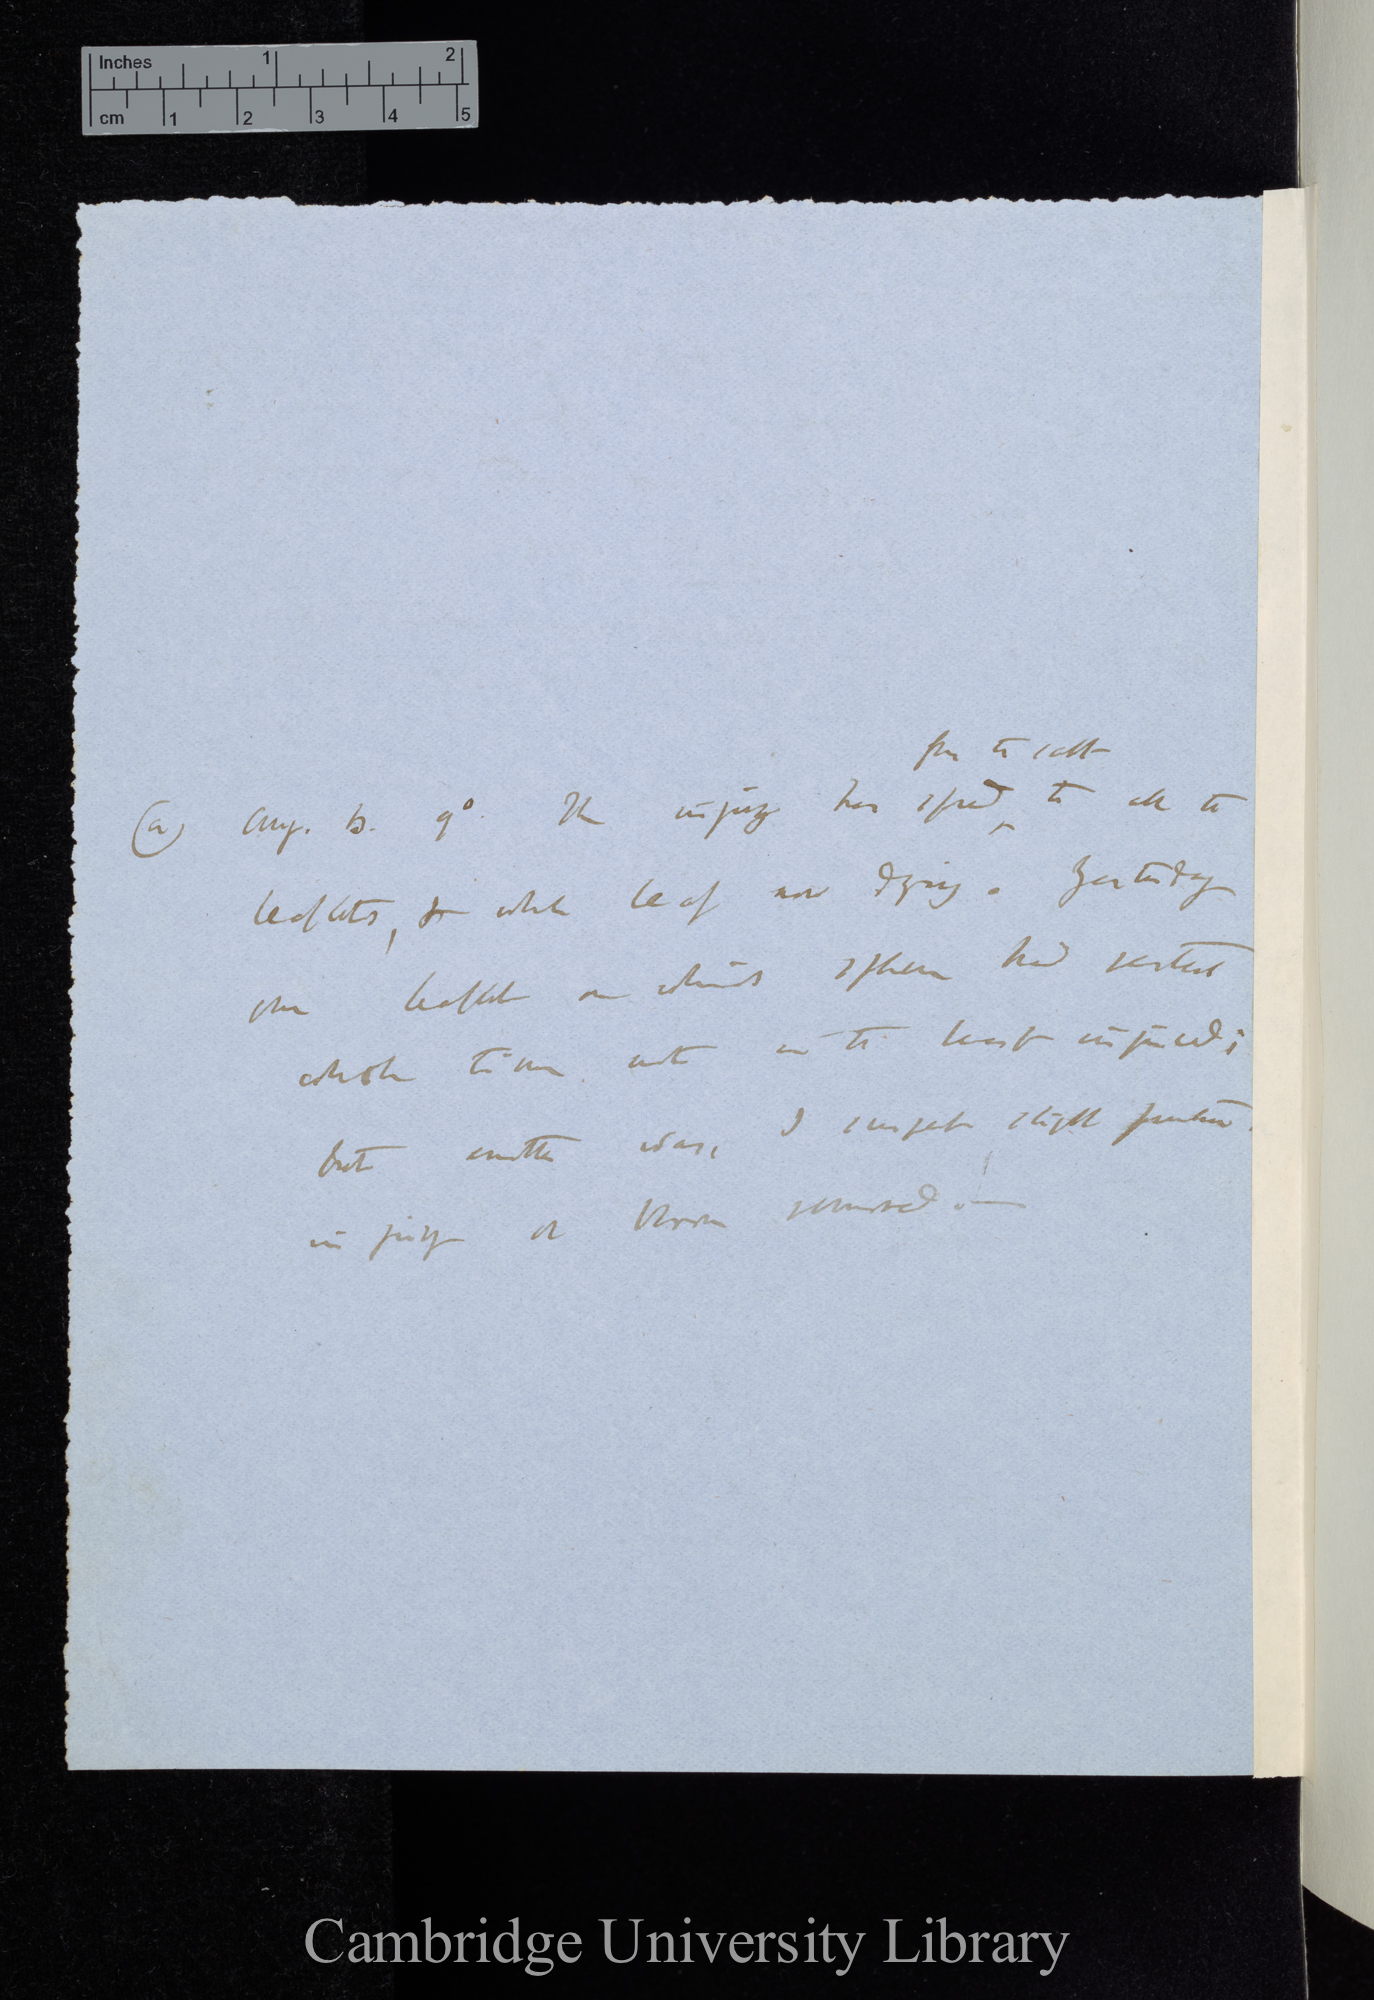 Inches 1 2
cm 1 2 3 4 5
from the salt
(a) Aug. 13. 9°. The injury has spread to all the
leaflets, & whole leaf now dying. Yesterday
one leaflet on which sphere had rested
whole time not in the least injured;
but another was, I suspect slight
injury or bloom removed.—
Cambridge University Library